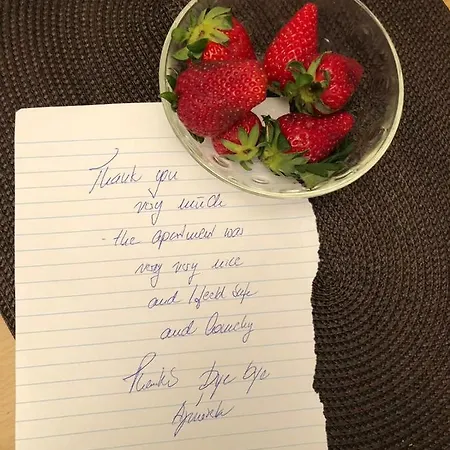 Thank you
very much
- the apartment was
very very nice
and I feeld safe
and
Thanks Bye bye